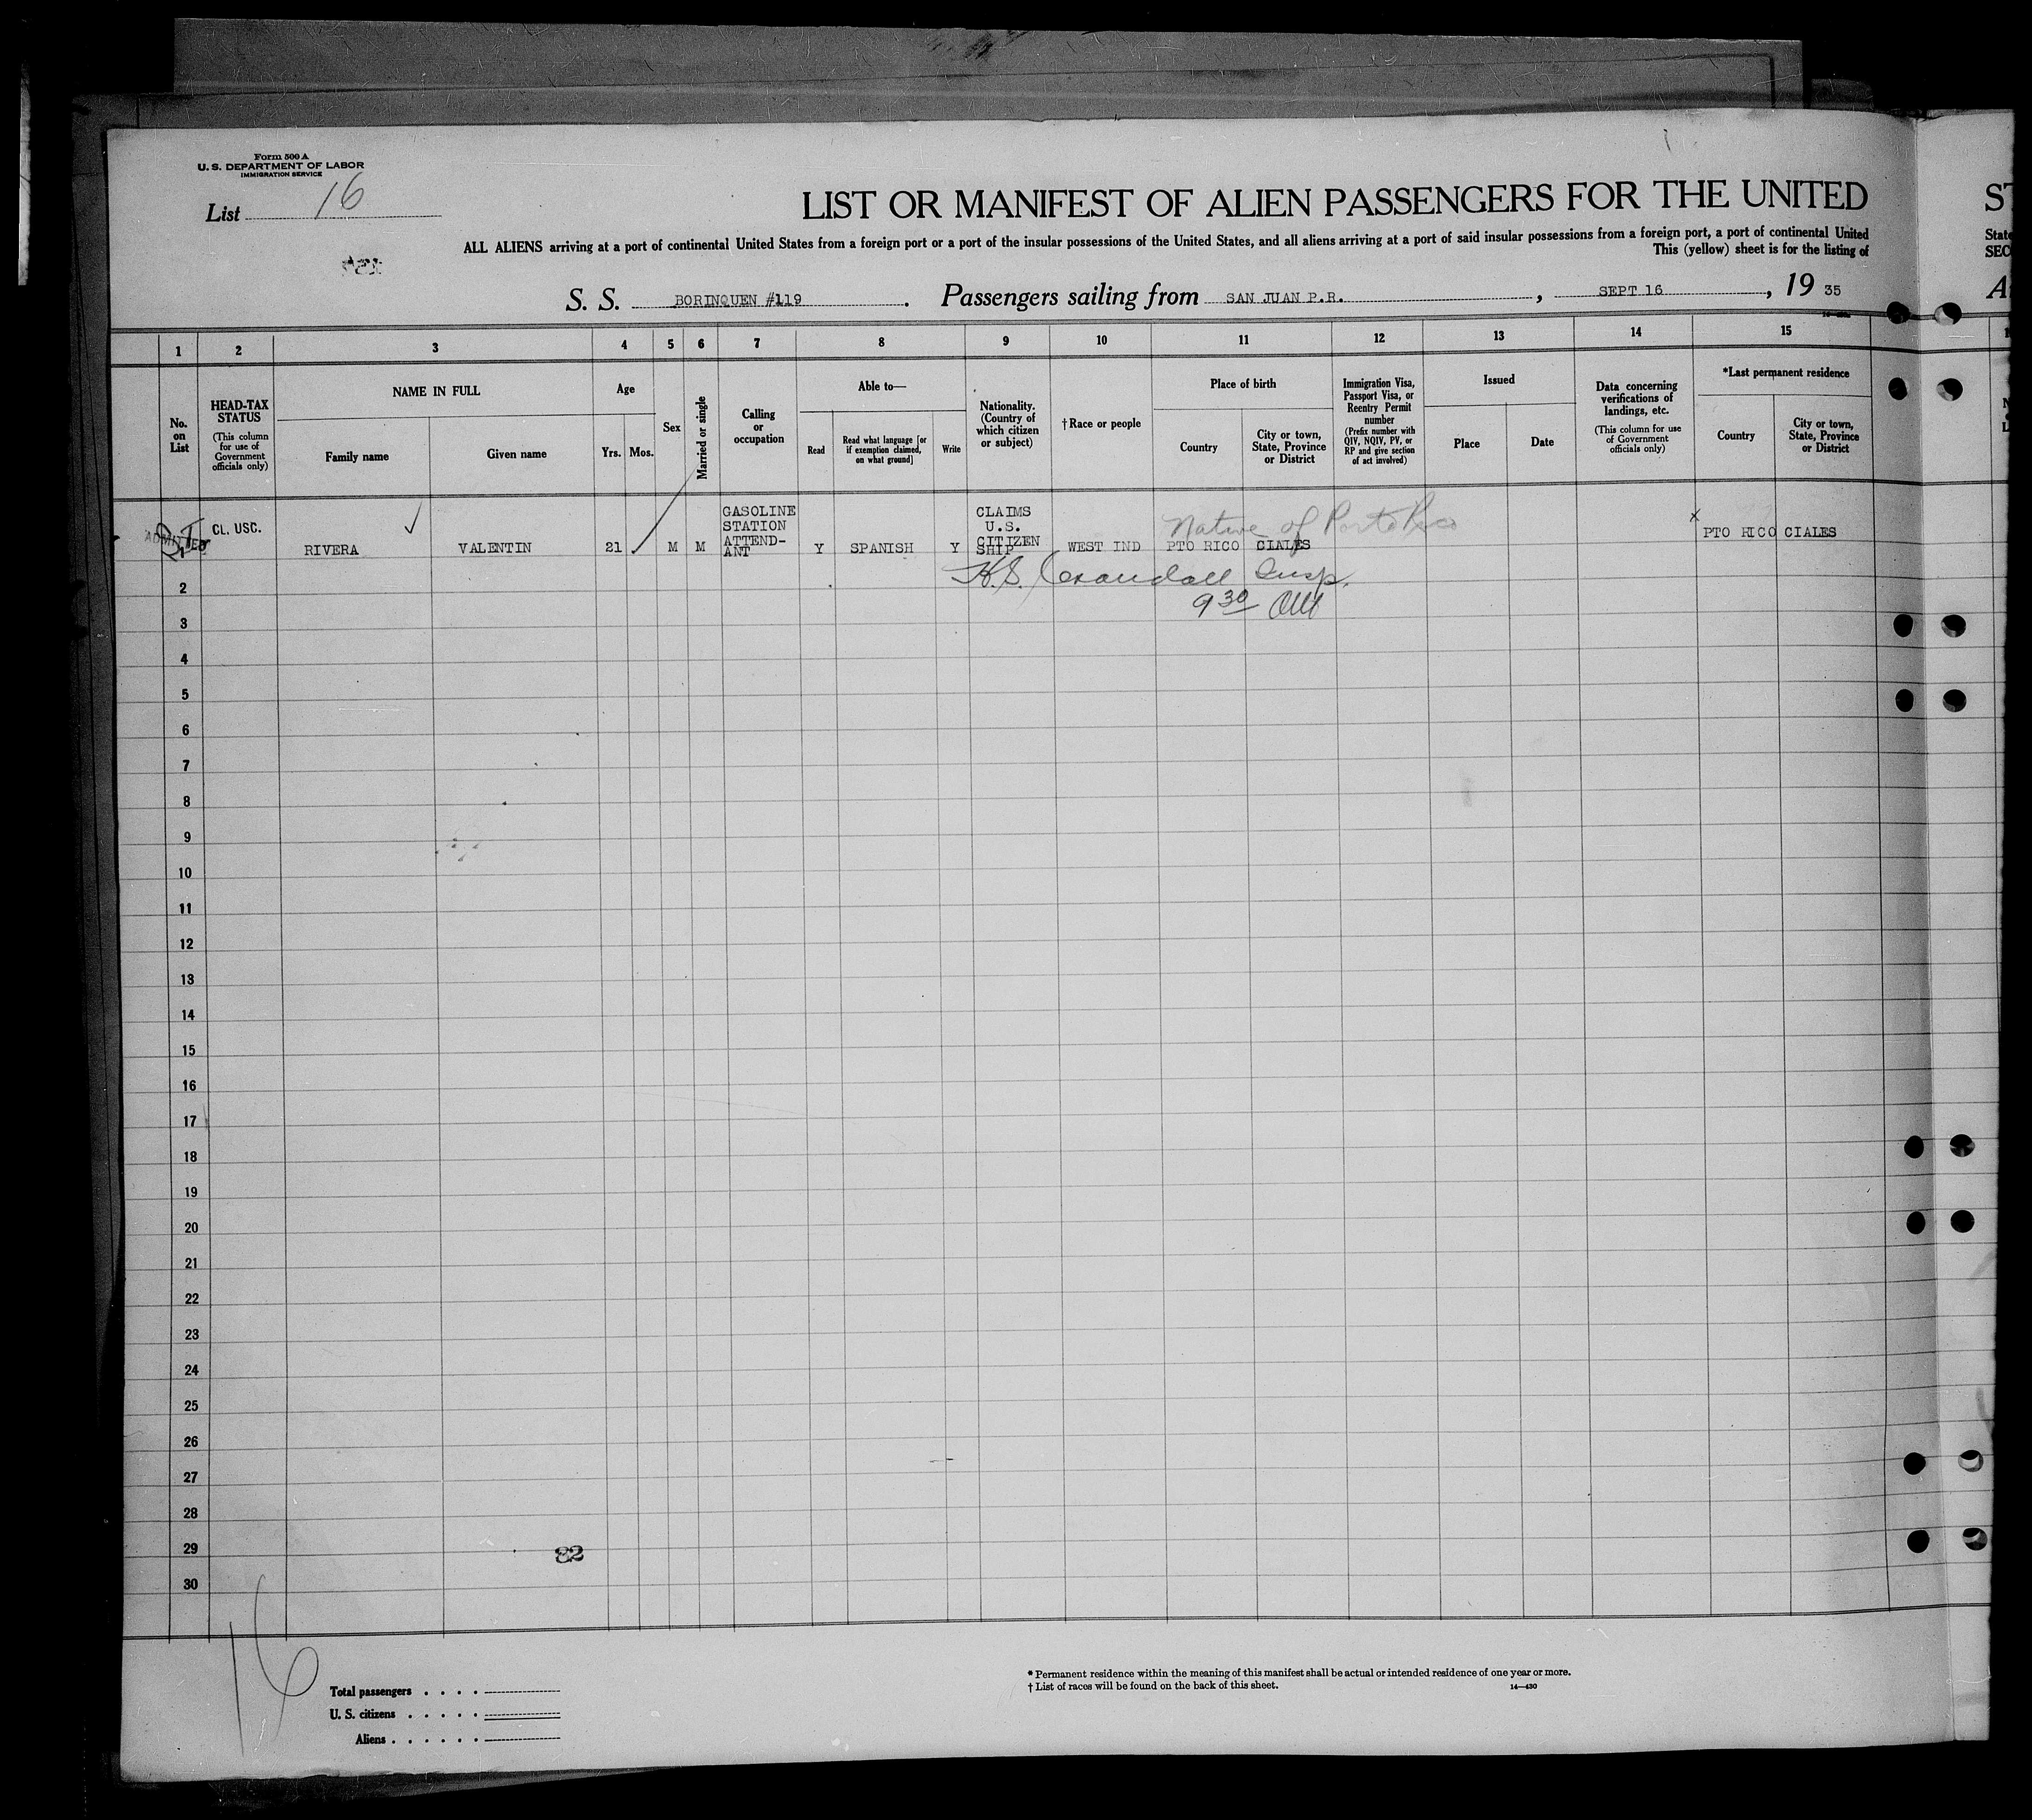 Form 500 A
U. S. DEPARTMENT OF LABOR
IMMIGRATION SERVICE
List 16
LIST OR MANIFEST OF ALIEN PASSENGERS FOR THE UNITED
ST
ALL ALIENS arriving at a port of continental United States from a foreign port or a port of the insular possessions of the United States, and all aliens arriving at a port of said insular possessions from a foreign port, a port of continental United
State
This (yellow) sheet is for the listing of
SEC
S. S. BORINQUEN #119. Passengers sailing from SAN JUAN P.R., SEPT 16, 19 35
1 2 3 4 5 6 7 8 9 10 11 12 13 14 15
No. on List
HEAD-TAX STATUS
(This column for use of Government officials only)
NAME IN FULL
Family name
Given name
Age
Yrs. Mos.
Sex
Married or single
Calling or occupation
Able to—
Read
Read what language [or if exemption claimed, on what ground]
Write
Nationality. (Country of which citizen or subject)
†Race or people
Place of birth
Country
City or town, State, Province or District
Immigration Visa, Passport Visa, or Reentry Permit number
(Prefix number with QIV, NQIV, PV, or RP and give section of act involved)
Issued
Place
Date
Data concerning verifications of landings, etc.
(This column for use of Government officials only)
*Last permanent residence
Country
City or town, State, Province or District
ADMITTED
1 CL. USC. RIVERA VALENTIN 21 M M GASOLINE STATION ATTEND-ANT Y SPANISH Y CLAIMS U.S. CITIZEN SHIP WEST IND PTO RICO CIALES x PTO RICO CIALES
Native of Porto Rico
Insp.
9 30
2
3
4
5
6
7
8
9
10
11
12
13
14
15
16
17
18
19
20
21
22
23
24
25
26
27
28
29
30
82
16
Total passengers . . . .
U. S. citizens . . . . .
Aliens . . . . . .
* Permanent residence within the meaning of this manifest shall be actual or intended residence of one year or more.
† List of races will be found on the back of this sheet.
14—430